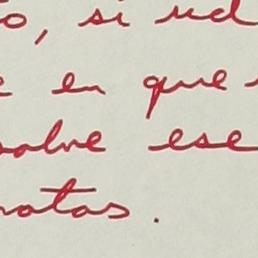 o, si ud
e en que
solve ese
natas.